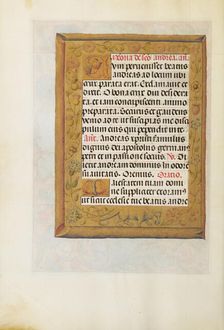 de sco andrea. an.
um peruenisset beatus
andreas ad locum ubi
crux parata erat. Exclamauit et
dixit. O bona crux diu desidera
ta et iam concupiscenti animo
preparata
securus et gaudens
discipulum eius qui pependit in te
Andreas xpisti famulus
dignus dei apostolus germanus
petri et in passione socius.
andreas dominus in odorem
suauitatis. Oremus. Oratio.
aiestatem tuam domi
ne suppliciter exoramus ut
sicut ecclesie tue beatus andre